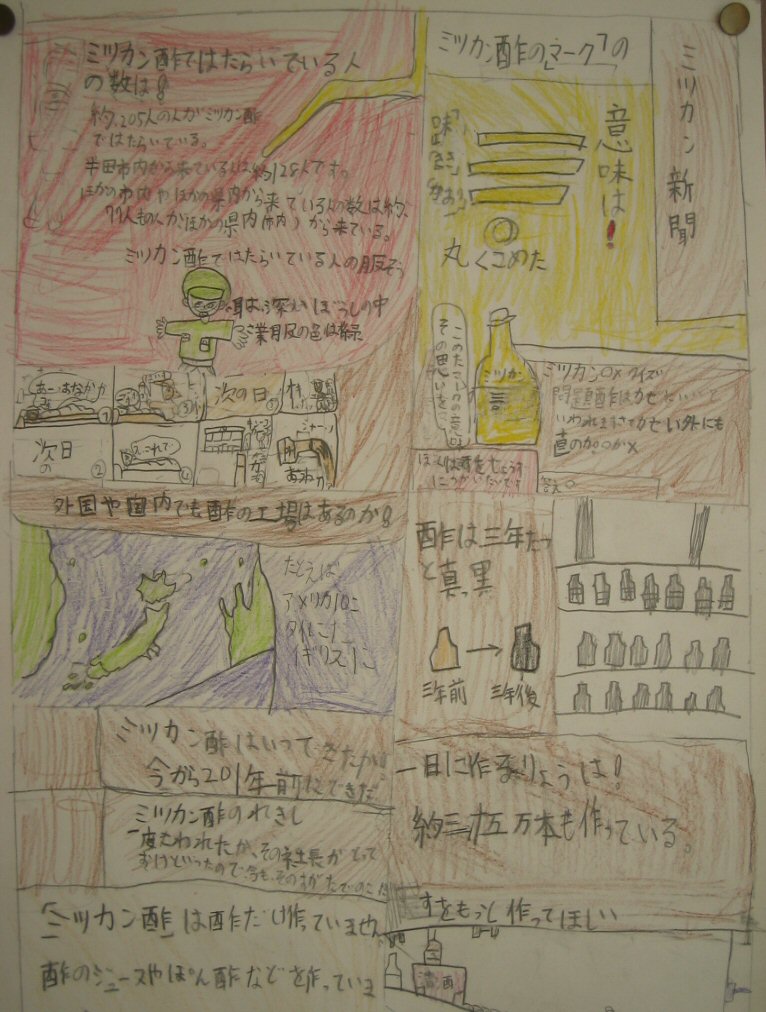 ミツカン新聞
ミツカン酢のマーク「の
意味は!
味
きき
丸くこめた
このたこつの意味
その思いを、
ミツカン
ミツカン○×クイズ
問題酢はかぜにいいと
いわれますがかぜい外にも
直のか○か×
答え○
ミツカン酢ではたらいている人
の数は?
約、205人の人がミツカン酢
ではたらいている。
半田市内から来ている人は約128人です。
ほかの市内やほかの県内から来ている人の数は約、
77人もの人がほかの県内(市内)から来ている。
ミツカン酢ではたらいている人の服そう
耳は、深いぼうしの中
業服の色は緑
あーっおなかが
①
③
次の日
⑤
次の日
②
これで
④
ジャー
外国や国内でも酢の工場はあるのか?
たとえば
アメリカ10こ
タイに1こ
イギリス1こ
酢は三年たつ
と真っ黒
三年前
三年後
ミツカン酢はいつできたか!
今から201年前にできた
ミツカン酢のれきし
一度こわれたが、その社長がとって
おけといったので今も、そのすがたでのこ
一日に作るりょうは!
約三十五万本も作っている。
「ミツカン酢」は酢だけ作っていません
酢のジュースやぽん酢などを作っていま
すをもっと作ってほしい
清酒